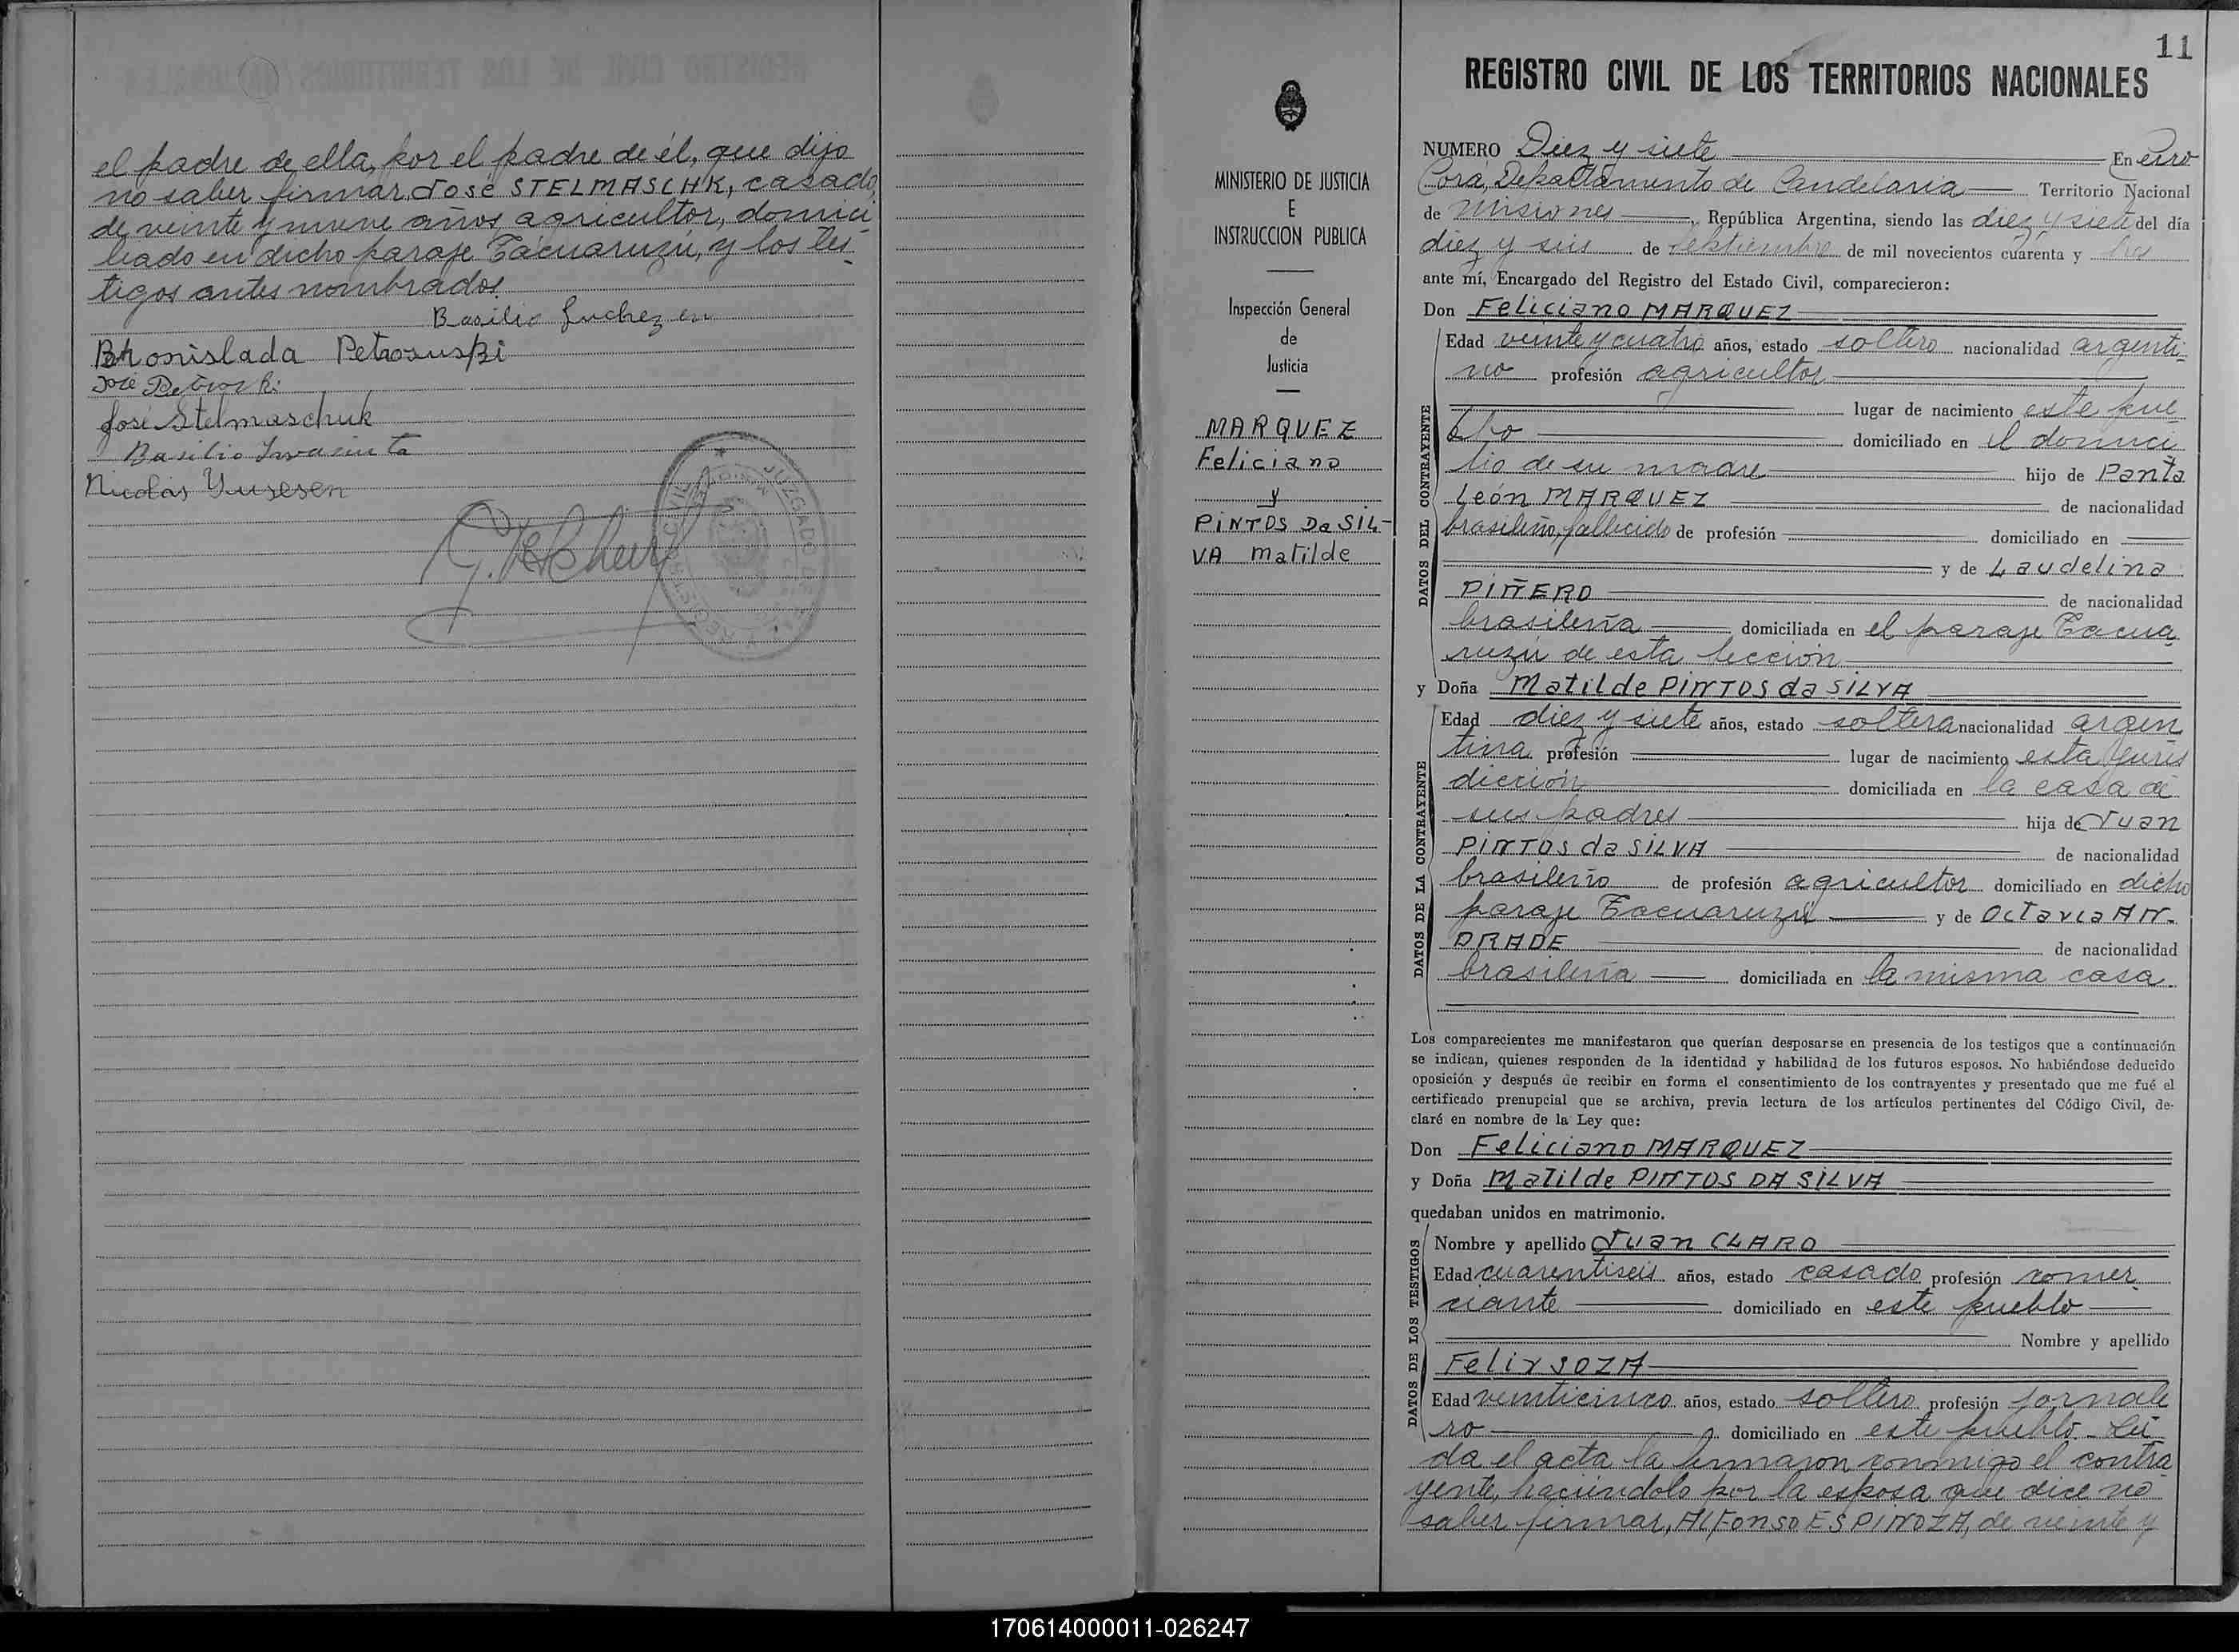 el padre de ella, por el padre de él, que dijo
no saber firmar, José STELMASCHK, casado,
de veinte y nueve años, agricultor, domici-
liado en dicho paraje Tacuaruzú, y los tes-
tigos antes nombrados.
Basilio
Bronislada Petrosuski
José
José Stelmaschuk
Basilio
Nicolás
11
REGISTRO CIVIL DE LOS TERRITORIOS NACIONALES
MINISTERIO DE JUSTICIA
E
INSTRUCCION PUBLICA
Inspección General
de
Justicia
MARQUEZ
Feliciano
y
PINTOS Da SIL-
VA Matilde
NUMERO Diez y siete En Cerro
Corá, Departamento de Candelaria Territorio Nacional
de Misiones, República Argentina, siendo las diez y siete del día
diez y seis de septiembre de mil novecientos cuarenta y tres
ante mí, Encargado del Registro del Estado Civil, comparecieron:
Don Feliciano MARQUEZ
DATOS DEL CONTRAYENTE
Edad veinte y cuatro años, estado soltero nacionalidad argenti-
no profesión agricultor
lugar de nacimiento este pue-
blo domiciliado en el domici-
lio de su madre hijo de Panta
León MARQUEZ de nacionalidad
brasileño, fallecido de profesión domiciliado en
y de Laudelina
PIÑERO de nacionalidad
brasileña domiciliada en el paraje Tacua-
ruzú de esta sección
y Doña Matilde PINTOS da SILVA
DATOS DE LA CONTRAYENTE
Edad diez y siete años, estado soltera nacionalidad argen-
tina profesión lugar de nacimiento esta juris
dicción domiciliada en la casa de
sus padres hija de Juan
PINTOS da SILVA de nacionalidad
brasileño de profesión agricultor domiciliado en dicho
paraje Tacuaruzú y de Octavia AN-
DRADE de nacionalidad
brasileña domiciliada en la misma casa.
Los comparecientes me manifestaron que querían desposarse en presencia de los testigos que a continuación
se indican, quienes responden de la identidad y habilidad de los futuros esposos. No habiéndose deducido
oposición y después de recibir en forma el consentimiento de los contrayentes y presentado que me fué el
certificado prenupcial que se archiva, previa lectura de los artículos pertinentes del Código Civil, de-
claré en nombre de la Ley que:
Don Feliciano MARQUEZ
y Doña Matilde PINTOS DA SILVA
quedaban unidos en matrimonio.
DATOS DE LOS TESTIGOS
Nombre y apellido Juan CLARO
Edad cuarentiseis años, estado casado profesión comer-
ciante domiciliado en este pueblo
Nombre y apellido
Felix SOZA
Edad veinticinco años, estado soltero profesión jornale
ro domiciliado en este pueblo - Leí-
da el acta la firmaron conmigo el contra
yente, haciéndolo por la esposa que dice no
saber firmar, Alfonso ESPINOZA, de veinte y
170614000011-026247